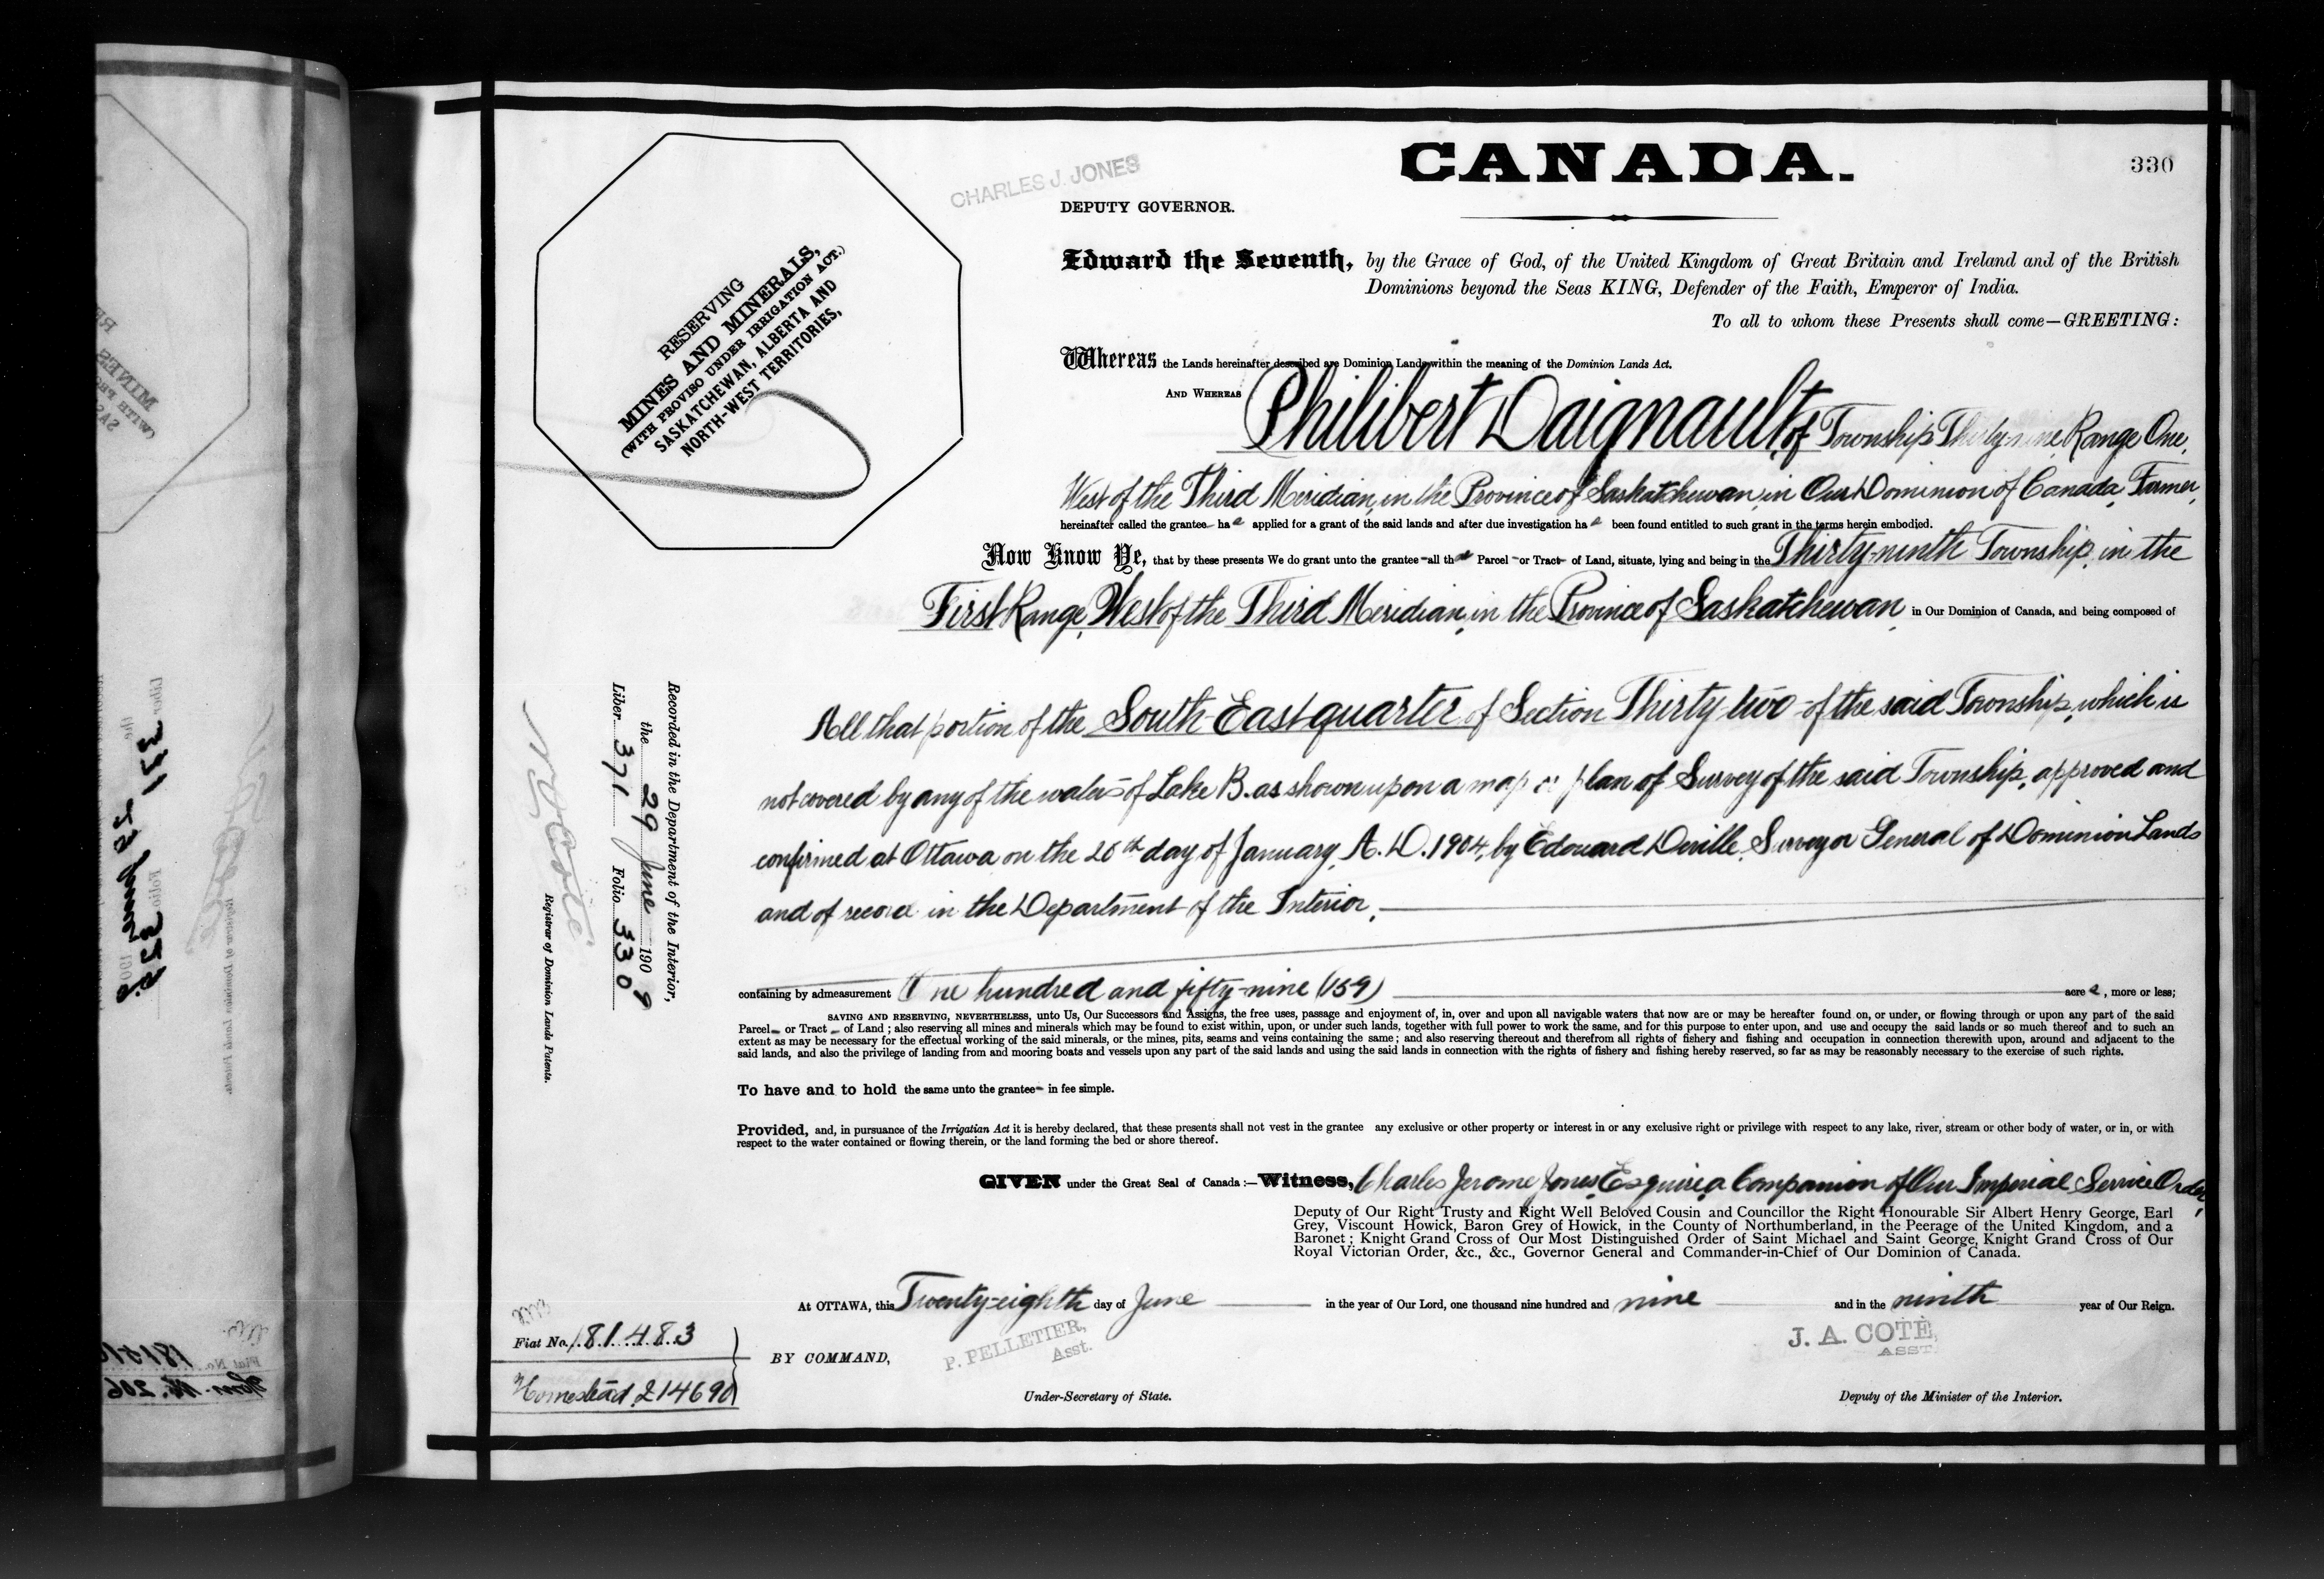 CANADA.
330
CHARLES J. JONES
DEPUTY GOVERNOR.
RESERVING
MINES AND MINERALS,
(WITH PROVISO UNDER IRRIGATION ACT.)
SASKATCHEWAN, ALBERTA AND
NORTH-WEST TERRITORIES,
Edward the Seventh, by the Grace of God, of the United Kingdom of Great Britain and Ireland and of the British
Dominions beyond the Seas KING, Defender of the Faith, Emperor of India.
To all to whom these Presents shall come—GREETING:
Whereas the Lands hereinafter described are Dominion Lands within the meaning of the Dominion Lands Act.
AND WHEREAS Philibert Daignault, of Township Thirty-nine, Range One,
West of the Third Meridian, in the Province of Saskatchewan, in Our Dominion of Canada, Farmer,
hereinafter called the grantee has applied for a grant of the said lands and after due investigation has been found entitled to such grant in the terms herein embodied.
Now Know Ye, that by these presents We do grant unto the grantee all that Parcel or Tract of Land, situate, lying and being in the Thirty-ninth Township, in the
First Range, West of the Third Meridian, in the Province of Saskatchewan, in Our Dominion of Canada, and being composed of
All that portion of the South East quarter of Section Thirty-two of the said Township, which is
not covered by any of the waters of Lake B. as shown upon a map or plan of Survey of the said Township, approved and
confirmed at Ottawa on the day of January, A.D. 1904, by Edouard Deville, Surveyor General of Dominion Lands
and of record in the Department of the Interior,
containing by admeasurement One hundred and fifty-nine (159) acres, more or less;
SAVING AND RESERVING, NEVERTHELESS, unto Us, Our Successors and Assigns, the free uses, passage and enjoyment of, in, over and upon all navigable waters that now are or may be hereafter found on, or under, or flowing through or upon any part of the said
Parcel or Tract of Land; also reserving all mines and minerals which may be found to exist within, upon, or under such lands, together with full power to work the same, and for this purpose to enter upon, and use and occupy the said lands or so much thereof and to such an
extent as may be necessary for the effectual working of the said minerals, or the mines, pits, seams and veins containing the same; and also reserving thereout and therefrom all rights of fishery and fishing and occupation in connection therewith upon, around and adjacent to the
said lands, and also the privilege of landing from and mooring boats and vessels upon any part of the said lands and using the said lands in connection with the rights of fishery and fishing hereby reserved, so far as may be reasonably necessary to the exercise of such rights.
To have and to hold the same unto the grantee in fee simple.
Provided, and, in pursuance of the Irrigatian Act it is hereby declared, that these presents shall not vest in the grantee any exclusive or other property or interest in or any exclusive right or privilege with respect to any lake, river, stream or other body of water, or in, or with
respect to the water contained or flowing therein, or the land forming the bed or shore thereof.
GIVEN under the Great Seal of Canada:—Witness, Charles Jerome Jones, Esquire, a Companion of Our Imperial Service Order,
Deputy of Our Right Trusty and Right Well Beloved Cousin and Councillor the Right Honourable Sir Albert Henry George, Earl
Grey, Viscount Howick, Baron Grey of Howick, in the County of Northumberland, in the Peerage of the United Kingdom, and a
Baronet; Knight Grand Cross of Our Most Distinguished Order of Saint Michael and Saint George, Knight Grand Cross of Our
Royal Victorian Order, &c., &c., Governor General and Commander-in-Chief of Our Dominion of Canada.
At OTTAWA, this Twenty-eighth day of June in the year of Our Lord, one thousand nine hundred and nine and in the ninth year of Our Reign.
BY COMMAND,
P. PELLETIER,
Asst.
Under-Secretary of State.
J. A. COTÉ,
ASST.
Deputy of the Minister of the Interior.
Recorded in the Department of the Interior,
the 29 June 1909
Liber 371 Folio 330
Registrar of Dominion Lands Patents.
Fiat No. 181483
Homestead 214690